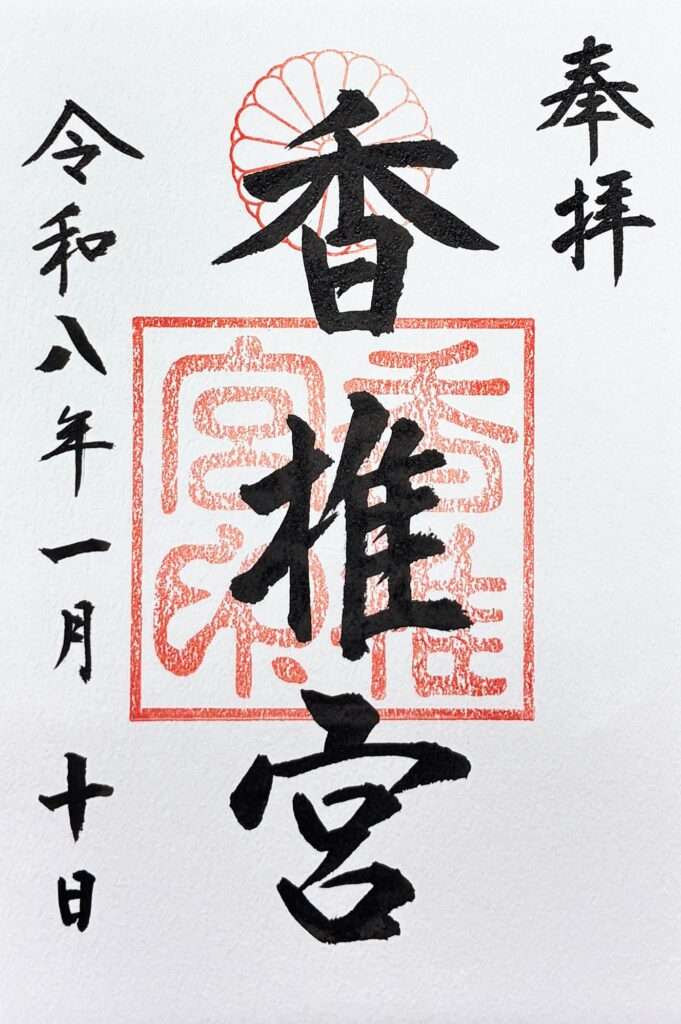 奉拝
香椎宮
香椎
宮印
令和八年一月十日